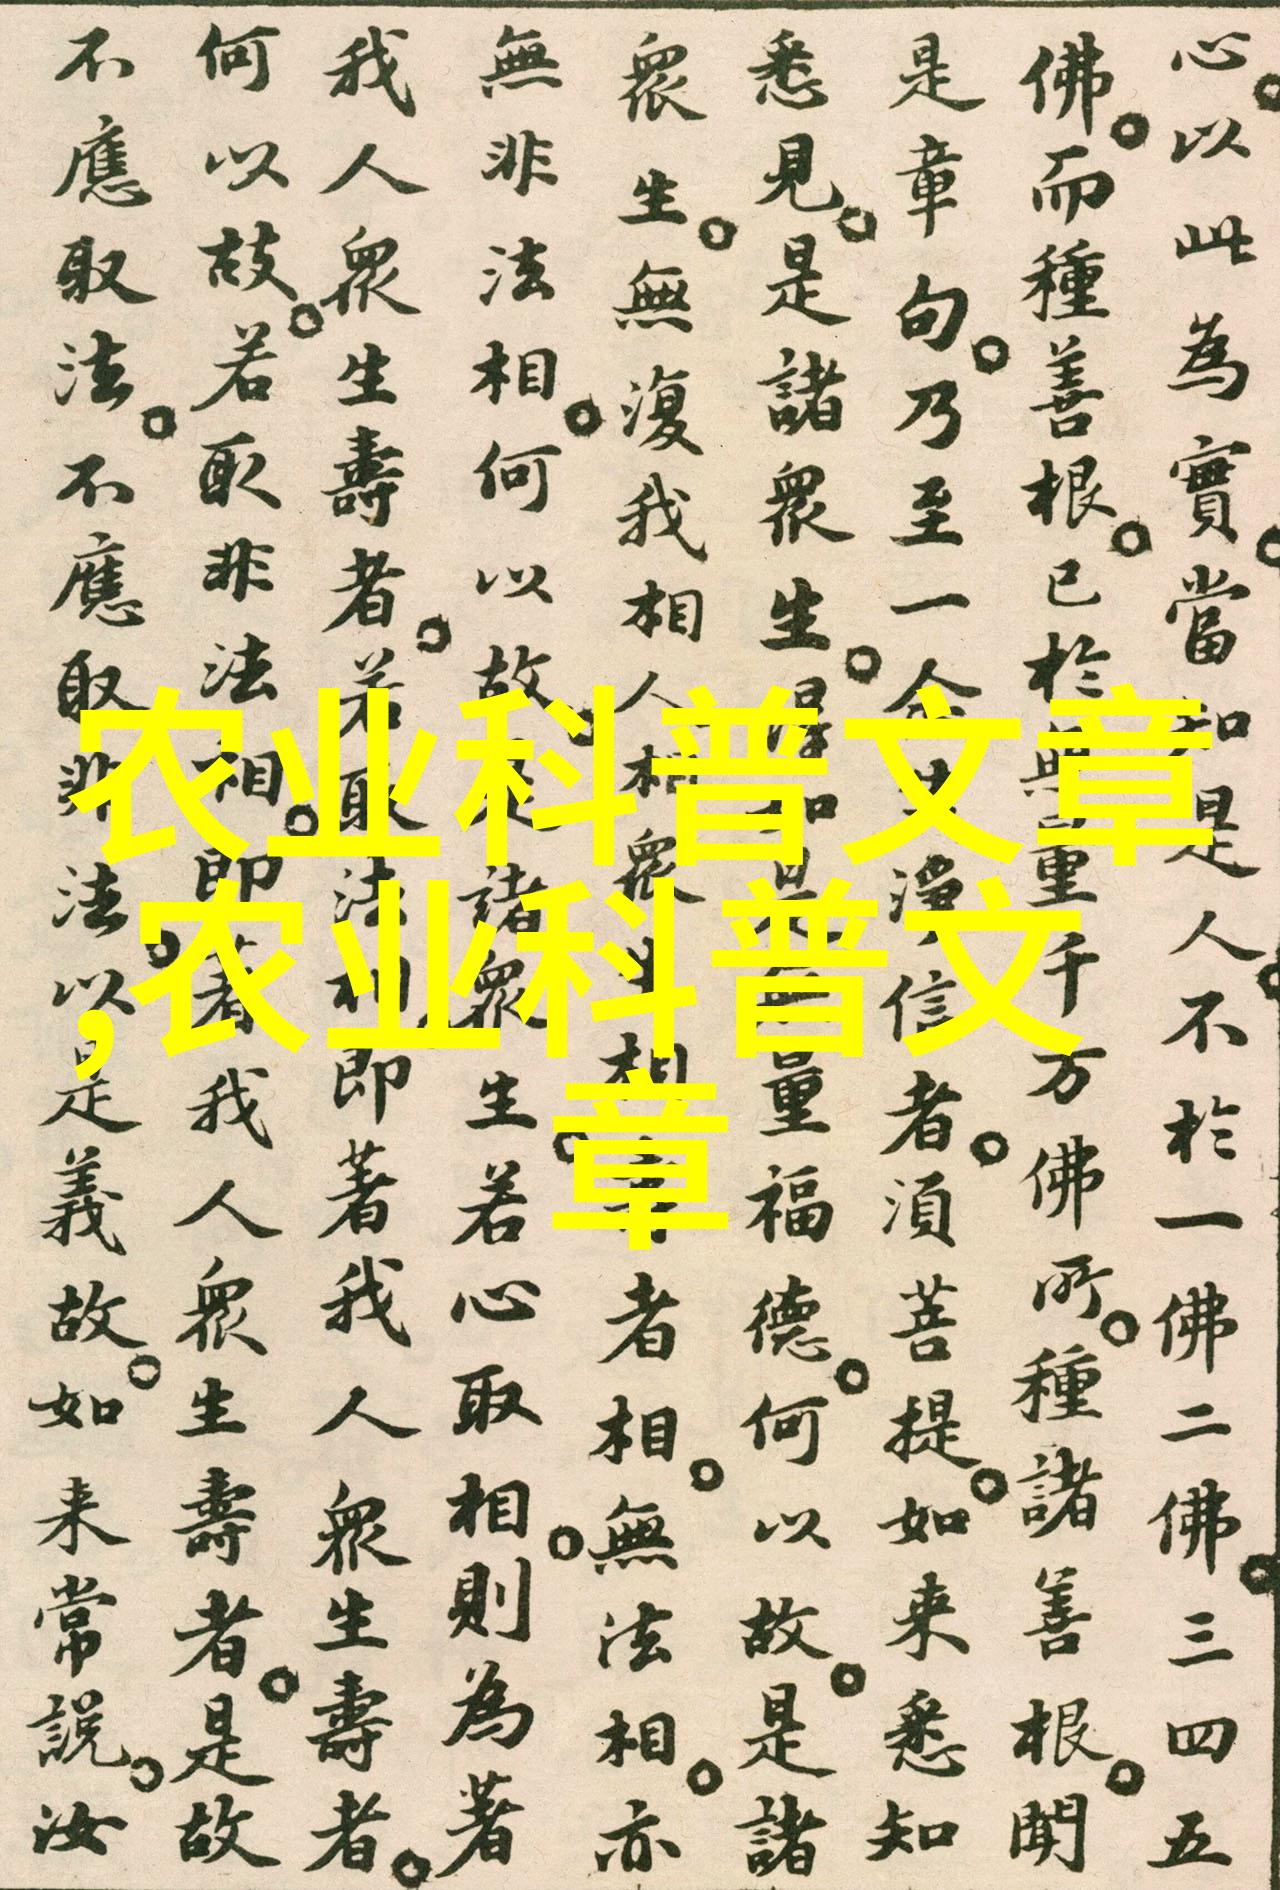 心。以此為實。當知是人。不於一佛二佛。三四五
佛。而種善根。已於無量千万佛所。種諸善根。聞
是章句。乃至一念生淨信者。須菩提。如来悉知
悉見。是諸衆生。得如是無量福德。何以故。是諸
衆生。無復我相人相衆生相壽者相。無法相。亦
無非法相。何以故。是諸衆生。若心取相。則為著
我人衆生壽者。若取法相即著我人衆生壽者。
何以故。若取非法相。即著我人衆生壽者。是故
不應取法。不應取非法。以是義故。如来常說。汝
农业科普文章
,农业科普文
章